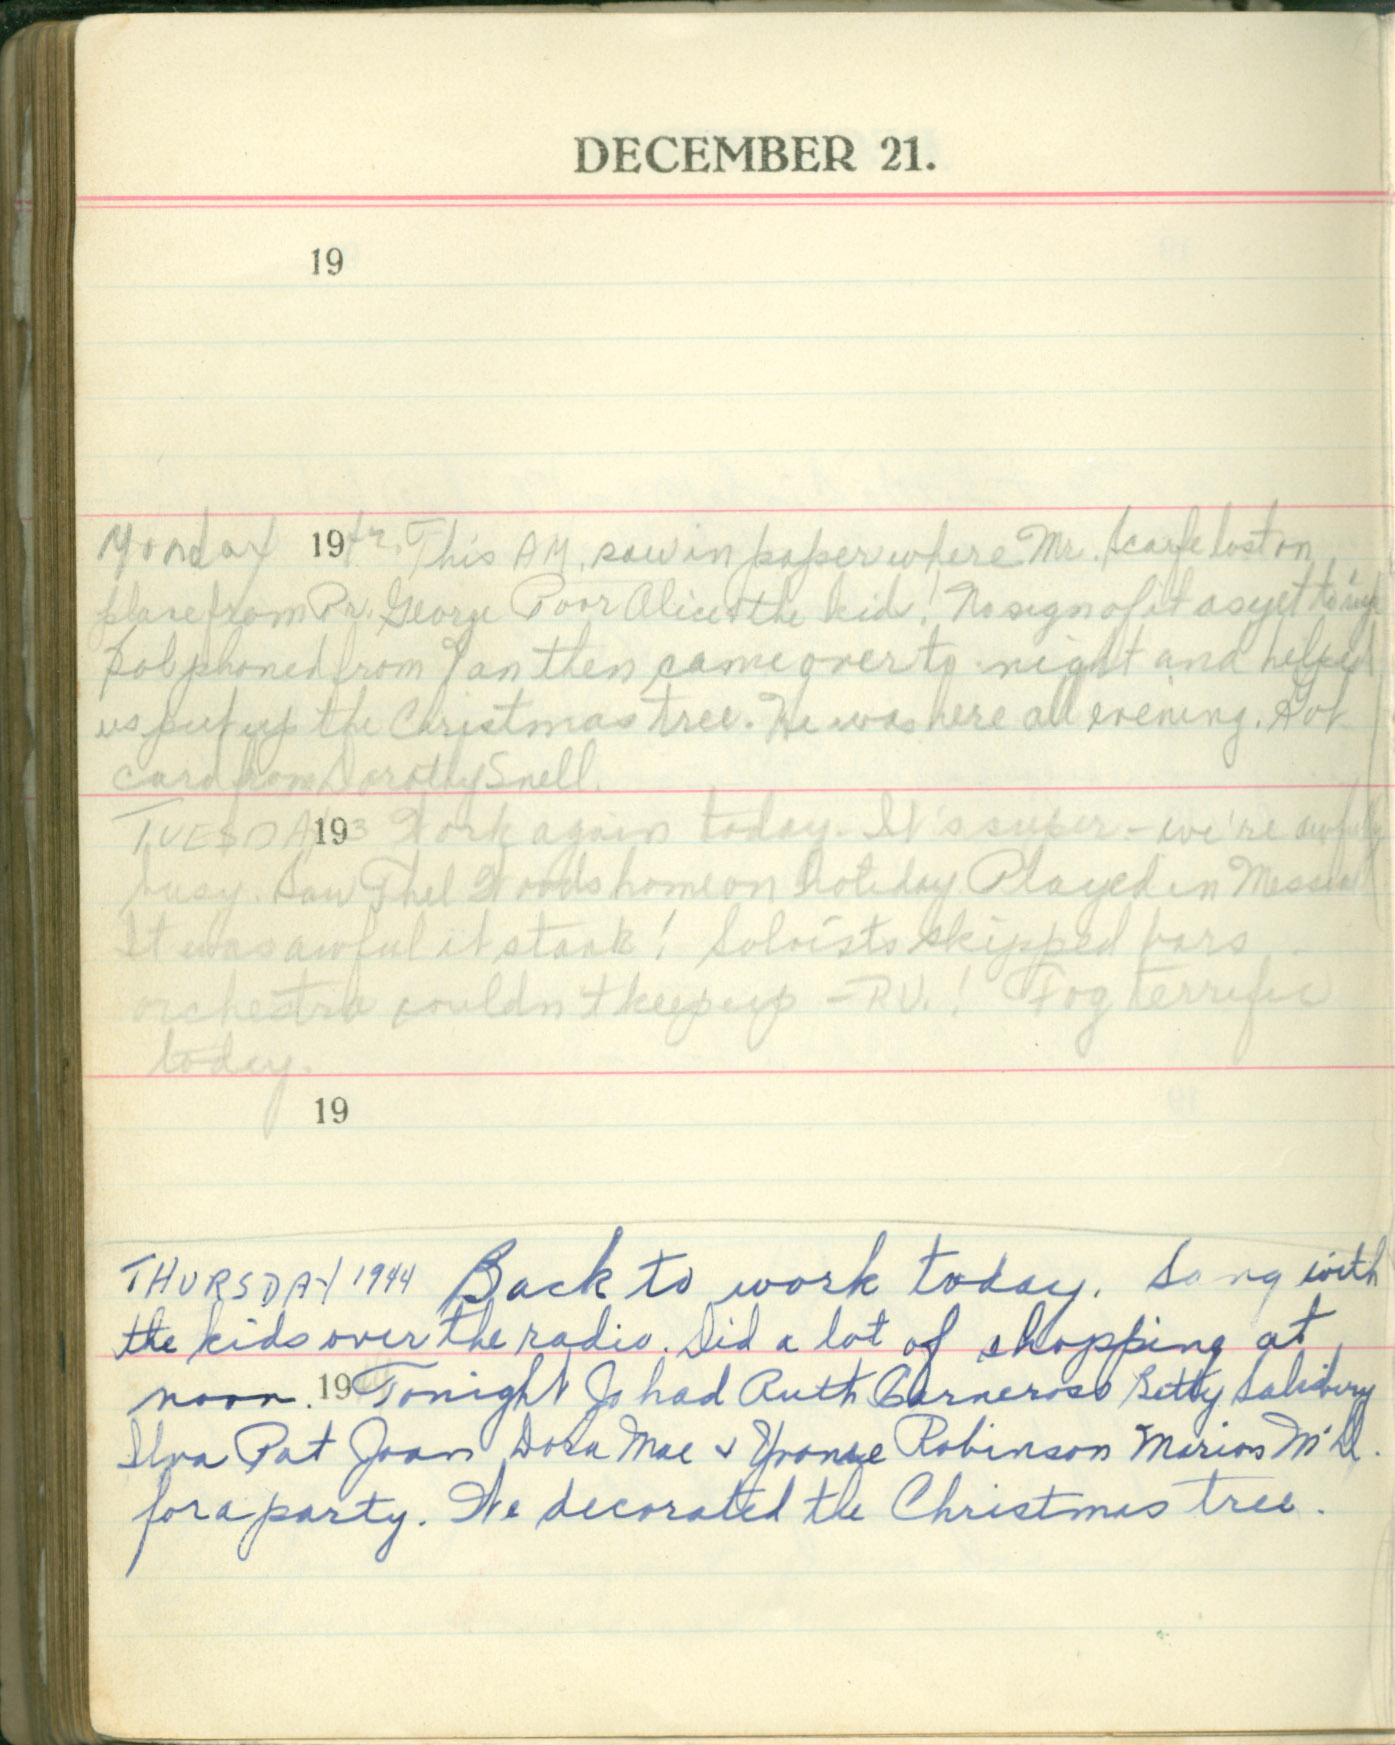 DECEMBER 21.
19
Monday 1942. This AM. saw in paper where Mr. Scarfe lost on
plane from Pr. George Poor Alice & the kid! No sign of it as yet
Bob phoned from Van then came over to-night and helped
us put up the Christmas tree. He was here all evening. Got
card from Dorothy Snell.
TUESDAY 193 Work again today. It's super - we're awfully
busy. Saw Thel Woods home on holiday. Played in Messiah
It was awful it stank! Soloists skipped bars -
orchestra couldn't keep up - RV.! Fog terrific
today.
19
THURSDAY 1944 Back to work today. Sang with
the kids over the radio. Did a lot of shopping at
noon. 19 Tonight Jo had Ruth Carncross Betty Salisbury
Elva Pat Joan Dora Mae & Yvonne Robinson Marion McD.
for a party. We decorated the Christmas tree.